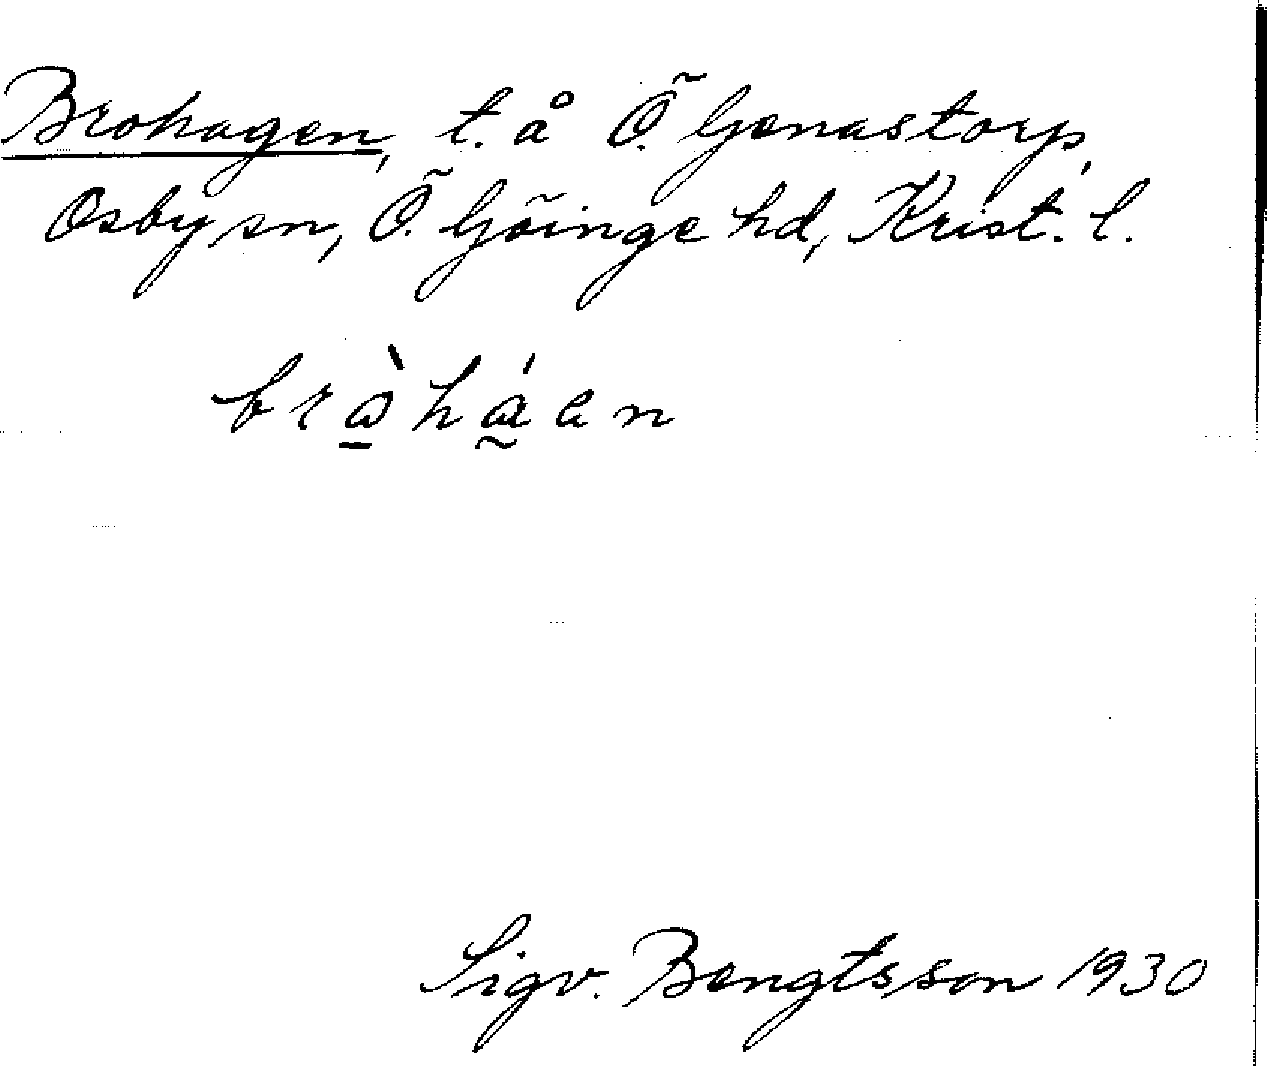 Brohagen, t. å Ö. Genastorp,
Osby sn, Ö. Göinge hd, Krist. l.
bròháen
Sigv. Bengtsson 1930